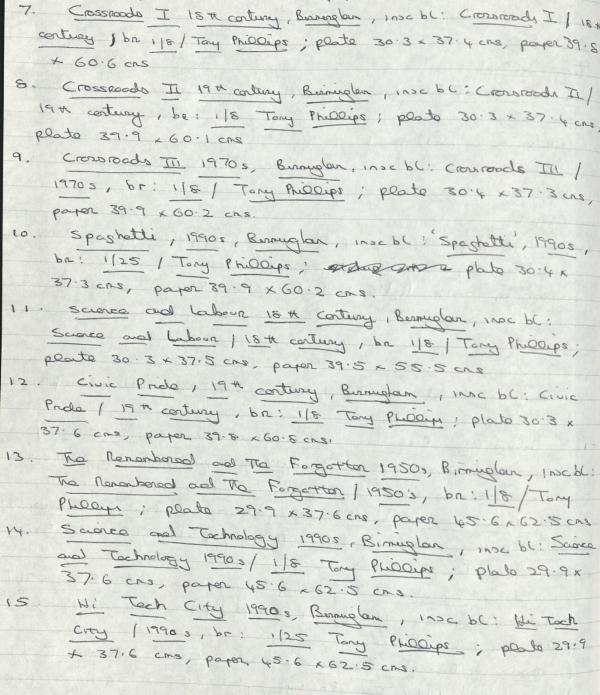 7. Crossroads I 18th century, Birmingham, insc bl: Crossroads I / 18th
century, br 1/8 / Tony Phillips; plate 30.3 x 37.4 cms, paper 39.8
x 60.6 cms
8. Crossroads II 19th century, Birmingham, insc bl: Crossroads II /
19th century, br: 1/8 Tony Phillips; plate 30.3 x 37.4 cms,
plate 39.9 x 60.1 cms
9. Crossroads III 1970s, Birmingham, insc bl: Crossroads III /
1970s, br: 1/8 / Tony Phillips; plate 30.4 x 37.3 cms,
paper 39.9 x 60.2 cms.
10. Spaghetti, 1990s, Birmingham, insc bl: 'Spaghetti', 1990s,
br: 1/25 / Tony Phillips; plate 30.4 x
37.3 cms, paper 39.9 x 60.2 cms.
11. Science and Labour 18th Century, Birmingham, insc bl:
Science and Labour / 18th century, br 1/8 / Tony Phillips;
plate 30.3 x 37.5 cms, paper 39.5 x 55.5 cms
12. Civic Pride, 19th century, Birmingham, insc bl: Civic
Pride / 19th century, br: 1/8 Tony Phillips; plate 30.3 x
37.6 cms, paper 39.8 x 60.5 cms.
13. The Remembered and The Forgotten 1950s, Birmingham, insc bl:
The Remembered and The Forgotten / 1950's, br: 1/8 / Tony
Phillips; plate 29.9 x 37.6 cms, paper 45.6 x 62.5 cms
14. Science and Technology 1990s, Birmingham, insc bl: Science
and Technology 1990s / 1/8 Tony Phillips; plate 29.9 x
37.6 cms, paper 45.6 x 62.5 cms.
15 Hi Tech City 1990s, Birmingham, insc bl: Hi Tech
City / 1990s, br: 1/25 Tony Phillips; plate 29.9
x 37.6 cms, paper 45.6 x 62.5 cms.